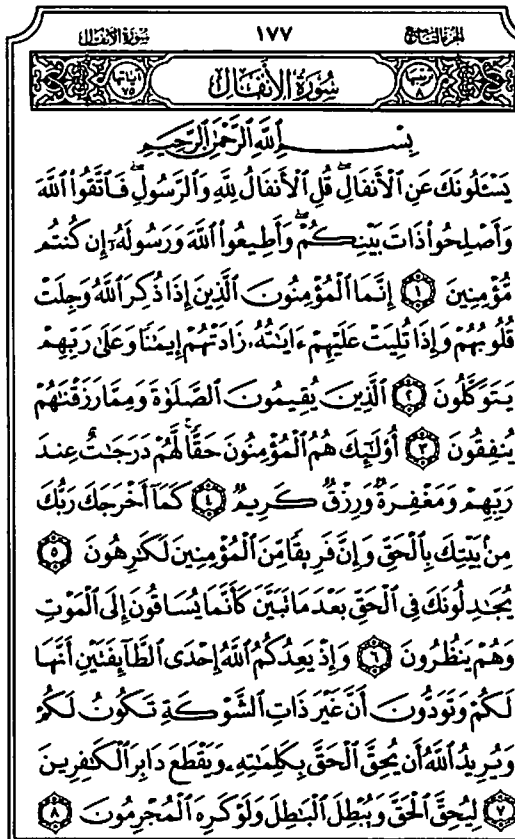 سُورَةُ الأَنفَالِ ١٧٧ الجزءُ التَّاسِعُ
آيَاتُهَا ٧٥ سُورَةُ الْأَنفَالِ تَرْتِيبُهَا ٨
بِسْمِ ٱللَّهِ ٱلرَّحْمَٰنِ ٱلرَّحِيمِ
يَسْـَٔلُونَكَ عَنِ ٱلْأَنفَالِۖ قُلِ ٱلْأَنفَالُ لِلَّهِ وَٱلرَّسُولِۖ فَٱتَّقُوا۟ ٱللَّهَ
وَأَصْلِحُوا۟ ذَاتَ بَيْنِكُمْۖ وَأَطِيعُوا۟ ٱللَّهَ وَرَسُولَهُۥٓ إِن كُنتُم
مُّؤْمِنِينَ ١ إِنَّمَا ٱلْمُؤْمِنُونَ ٱلَّذِينَ إِذَا ذُكِرَ ٱللَّهُ وَجِلَتْ
قُلُوبُهُمْ وَإِذَا تُلِيَتْ عَلَيْهِمْ ءَايَٰتُهُۥ زَادَتْهُمْ إِيمَٰنًا وَعَلَىٰ رَبِّهِمْ
يَتَوَكَّلُونَ ٢ ٱلَّذِينَ يُقِيمُونَ ٱلصَّلَوٰةَ وَمِمَّا رَزَقْنَٰهُمْ
يُنفِقُونَ ٣ أُو۟لَٰٓئِكَ هُمُ ٱلْمُؤْمِنُونَ حَقًّاۚ لَّهُمْ دَرَجَٰتٌ عِندَ
رَبِّهِمْ وَمَغْفِرَةٌ وَرِزْقٌ كَرِيمٌ ٤ كَمَآ أَخْرَجَكَ رَبُّكَ
مِنۢ بَيْتِكَ بِٱلْحَقِّ وَإِنَّ فَرِيقًا مِّنَ ٱلْمُؤْمِنِينَ لَكَٰرِهُونَ ٥
يُجَٰدِلُونَكَ فِى ٱلْحَقِّ بَعْدَ مَا تَبَيَّنَ كَأَنَّمَا يُسَاقُونَ إِلَى ٱلْمَوْتِ
وَهُمْ يَنظُرُونَ ٦ وَإِذْ يَعِدُكُمُ ٱللَّهُ إِحْدَى ٱلطَّآئِفَتَيْنِ أَنَّهَا
لَكُمْ وَتَوَدُّونَ أَنَّ غَيْرَ ذَاتِ ٱلشَّوْكَةِ تَكُونُ لَكُمْ
وَيُرِيدُ ٱللَّهُ أَن يُحِقَّ ٱلْحَقَّ بِكَلِمَٰتِهِۦ وَيَقْطَعَ دَابِرَ ٱلْكَٰفِرِينَ
٧ لِيُحِقَّ ٱلْحَقَّ وَيُبْطِلَ ٱلْبَٰطِلَ وَلَوْ كَرِهَ ٱلْمُجْرِمُونَ ٨